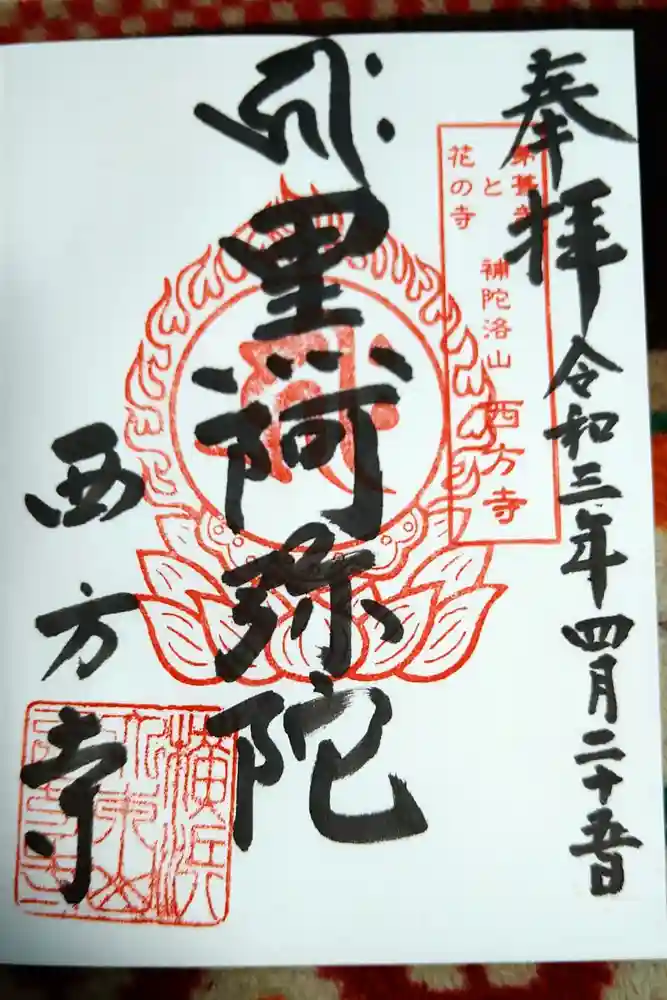 奉拝 令和三年四月二十五日
と
花の寺
補陀洛山 西方寺
黒阿弥陀
西方寺
横浜